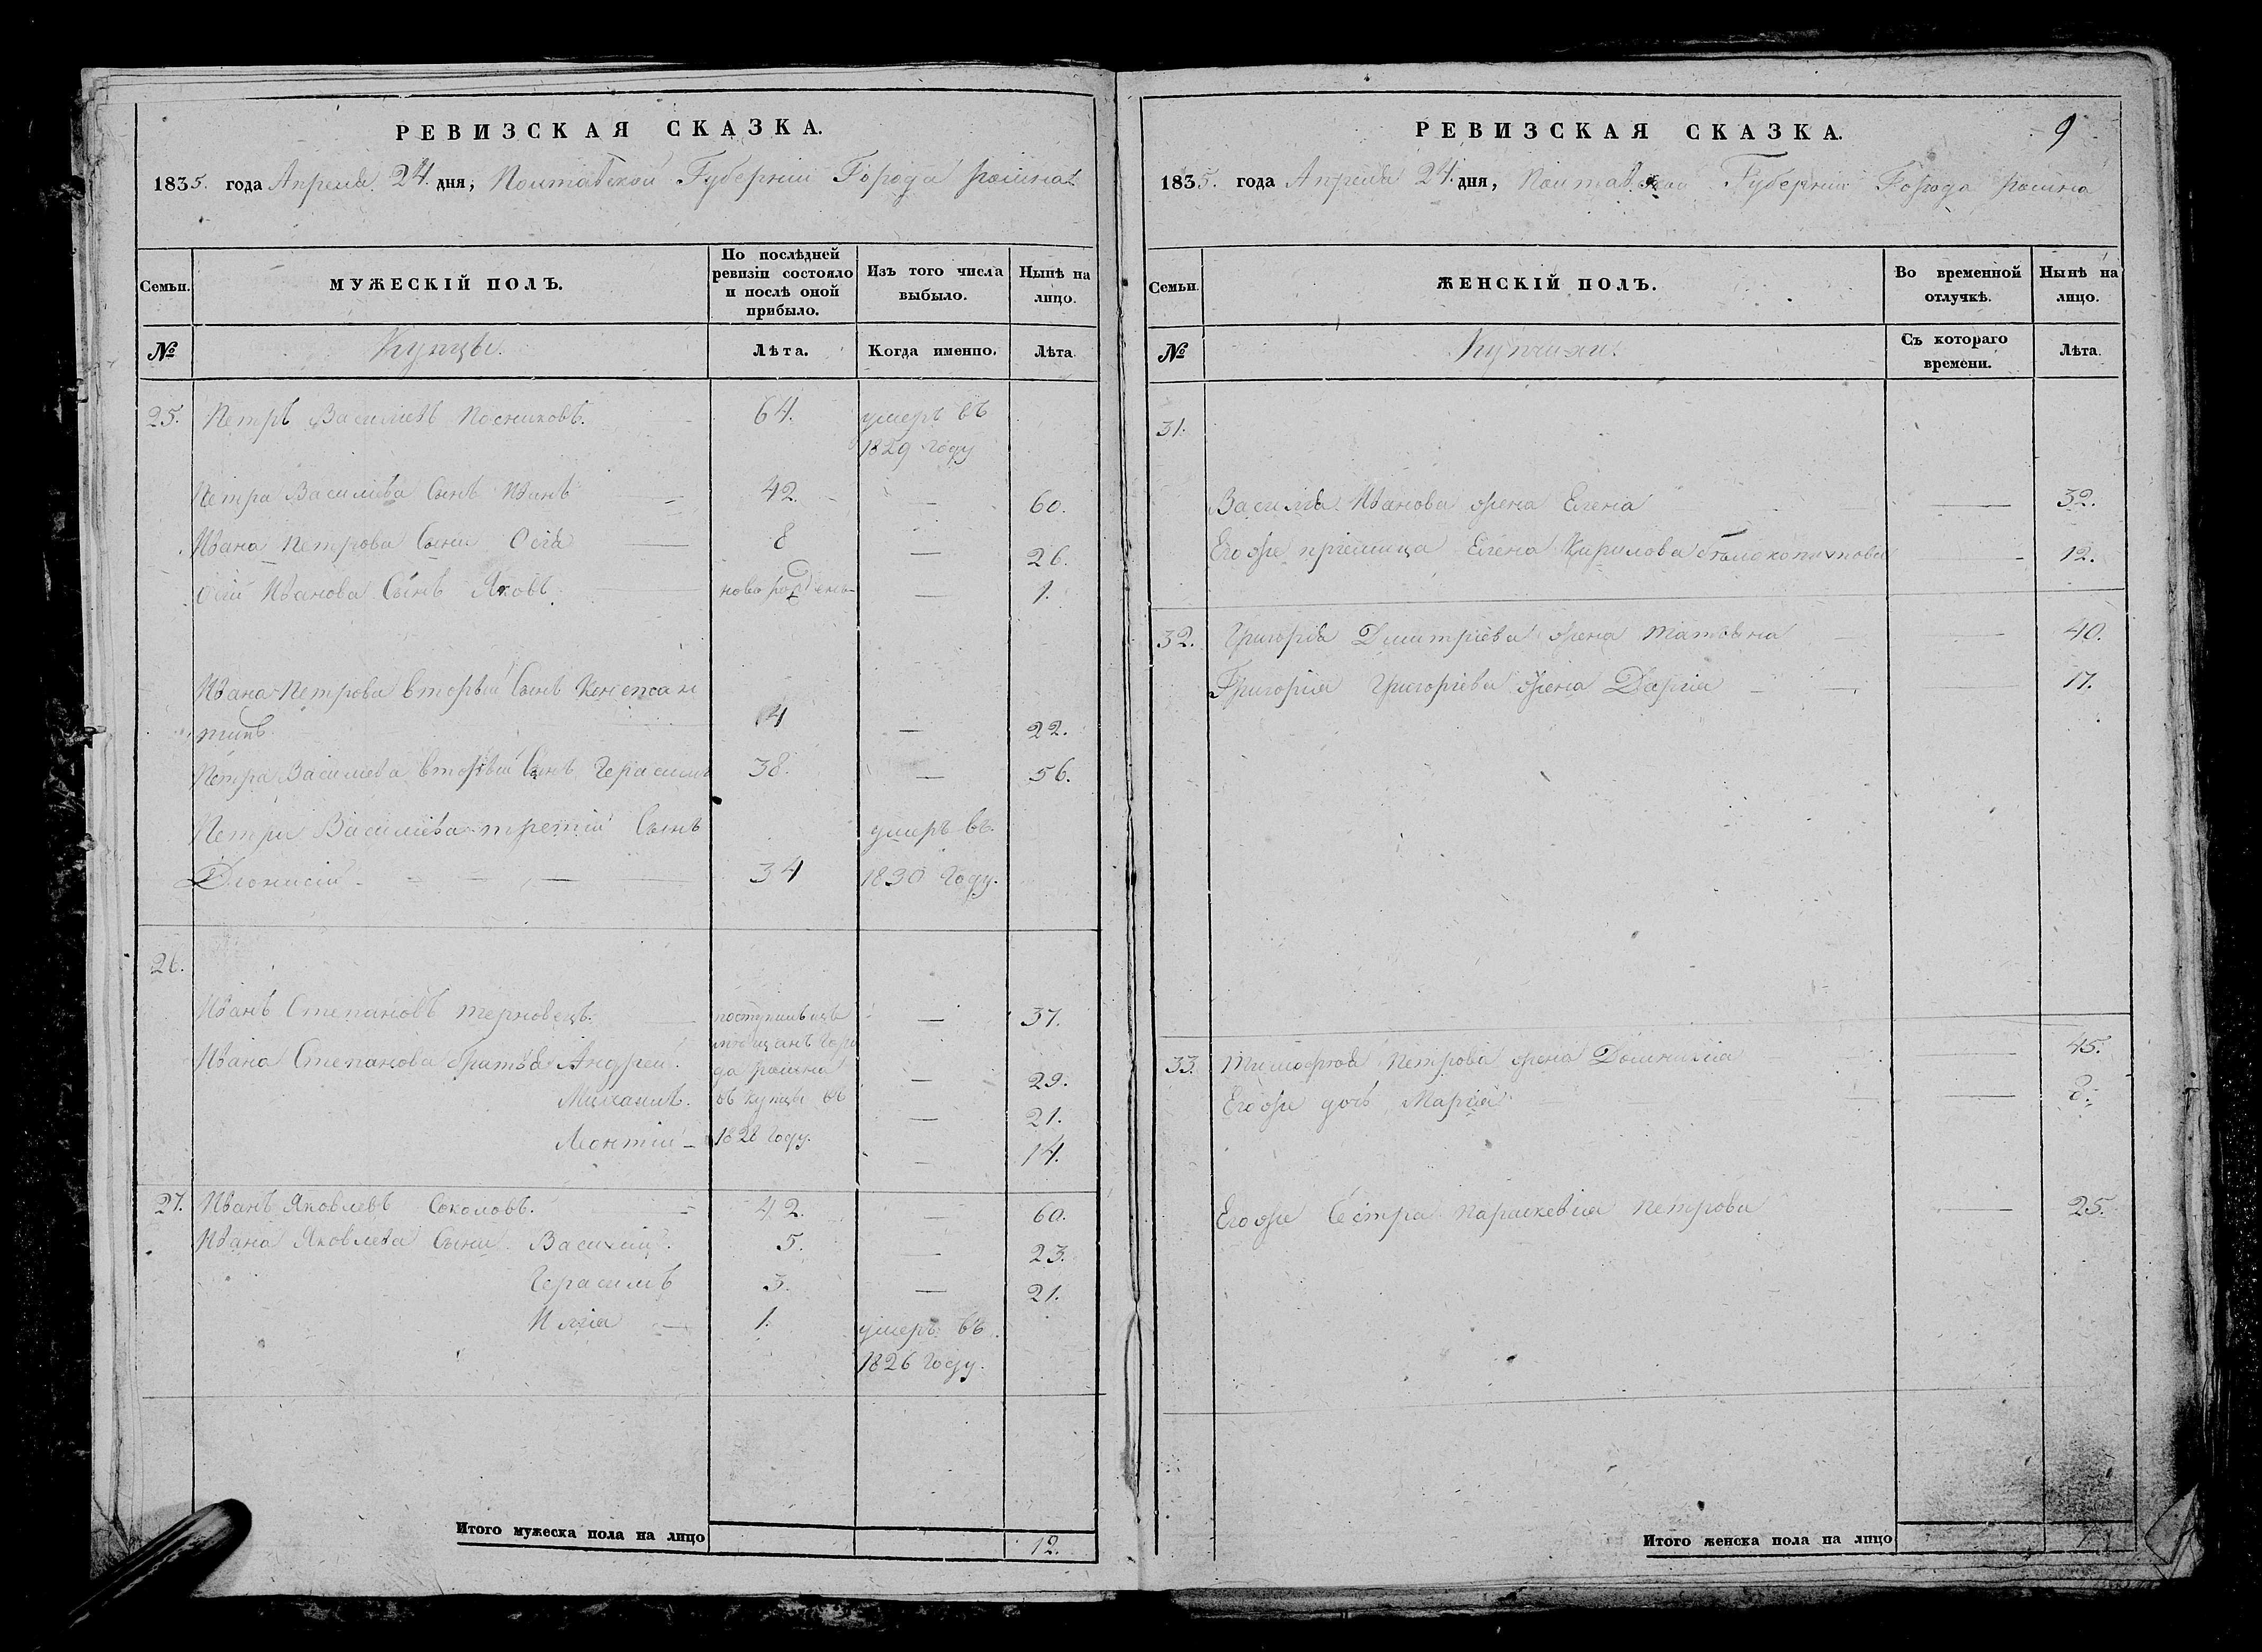 РЕВИЗСКАЯ СКАЗКА.
1835. года Апреля 24. дня, Полтавской Губернии Города Ромна
Семьи.
МУЖЕСКІЙ ПОЛЪ.
По послѣдней ревизіи состояло и послѣ оной прибыло.
Изъ того числа выбыло.
Нынѣ на лицо.
№
Купцы.
Лѣта.
Когда именно.
Лѣта.
25. Петръ Василиевъ Посниковъ. 64. умеръ въ
1829 году
Петра Василиева Сынъ Иванъ 42. — 60.
Ивана Петрова Сыни Осіа 8 — 26.
Осіи Иванова Сынъ Яковъ новорожденъ — 1.
Ивана Петрова вторый Сынъ Констан
тинъ 4 — 22.
Петра Василиева вторый Сынъ Герасимъ 38. — 56.
Петра Василиева третій Сынъ умеръ въ
Діонисій 34 1830 году.
26.
Иванъ Степановъ Терновецъ. поступилъ изъ — 37.
мещанъ Горо
Ивана Степанова братья Андрей. да Ромна — 29.
Михаилъ. въ купцы въ — 21.
Леонтій 1828 году. — 14.
27. Иванъ Яковлевъ Соколовъ. 42. — 60.
Ивана Яковлева Сыни Василий. 5. — 23.
Герасимъ 3. — 21.
Илія 1. умеръ въ
1826 году.
Итого мужеска пола на лицо 12.
9
РЕВИЗСКАЯ СКАЗКА.
1835. года Апреля 24. дня, Полтавской Губерніи Города Ромна
Семьи.
ЖЕНСКІЙ ПОЛЪ.
Во временной отлучкѣ.
Нынѣ на лицо.
№
Купчихи.
Съ котораго времени.
Лѣта.
31.
Василія Иванова жена Елена — 32.
Его же пріемица Елена Кирилова — 12.
32. Григорія Дмитріева жена Татьяна — 40.
Григорія Григоріева жена Дарія — 17.
33. Тимофея Петрова жена Домникія — 45.
Его же дочь Марія — 8.
Его же Сестра Параскевія Петрова — 25.
Итого женска пола на лицо